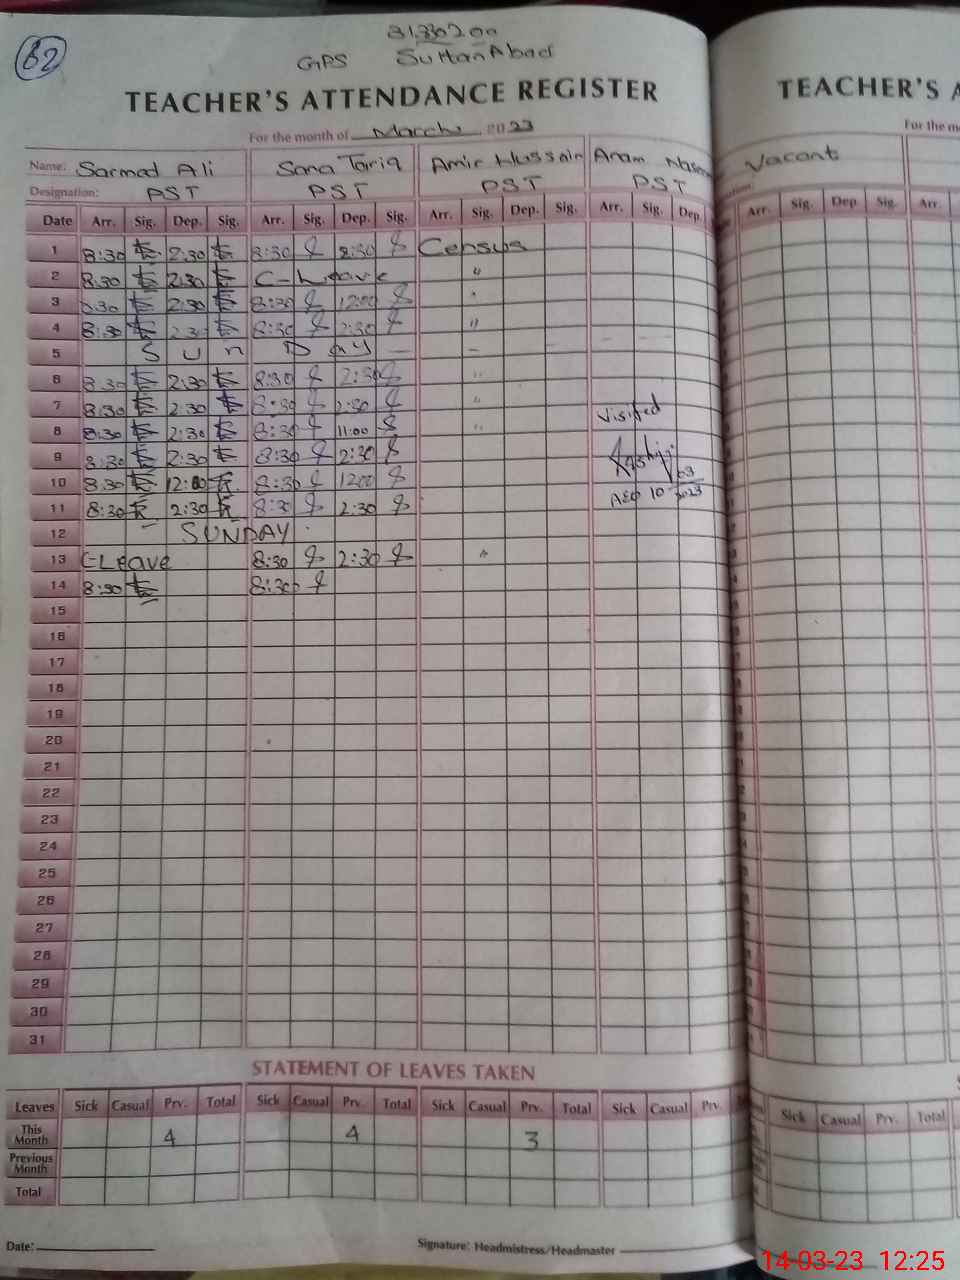 62
31330200
GPS Sultan Abad
TEACHER'S ATTENDANCE REGISTER
TEACHER'S A
For the month of March 2023
For the m
Name: Sarmad Ali Sana Tariq Amir Hussain Anam Vacant
Designation: PST PST PST PST
Date Arr. Sig. Dep. Sig. Arr. Sig. Dep. Sig. Arr. Sig. Dep. Sig. Arr. Sig. Dep. Arr. Sig. Dep Sig. Arr.
1 8:30 2:30 8:30 2:30 Census
2 8:30 2:30 C-Leave "
3 8:30 2:30 8:30 12:00 "
4 8:30 2:30 8:30 2:30 "
5 S u n D ay — –
6 8:30 2:30 8:30 2:30 "
7 8:30 2:30 8:30 2:30 "
8 8:30 2:30 8:30 11:00 " Visited
9 8:30 2:30 8:30 2:30
10 8:30 12:00 8:30 12:00
11 8:30 2:30 8:30 2:30 AEO 10-03-2023
12 SUNDAY
13 C-Leave 8:30 2:30 "
14 8:30 8:30
15
16
17
18
19
20
21
22
23
24
25
26
27
28
29
30
31
STATEMENT OF LEAVES TAKEN
Leaves Sick Casual Prv. Total Sick Casual Prv. Total Sick Casual Prv. Total Sick Casual Prv. Sick Casual Prv. Total
This Month 4 4 3
Previous Month
Total
Date:
Signature: Headmistress/Headmaster
14-03-23 12:25